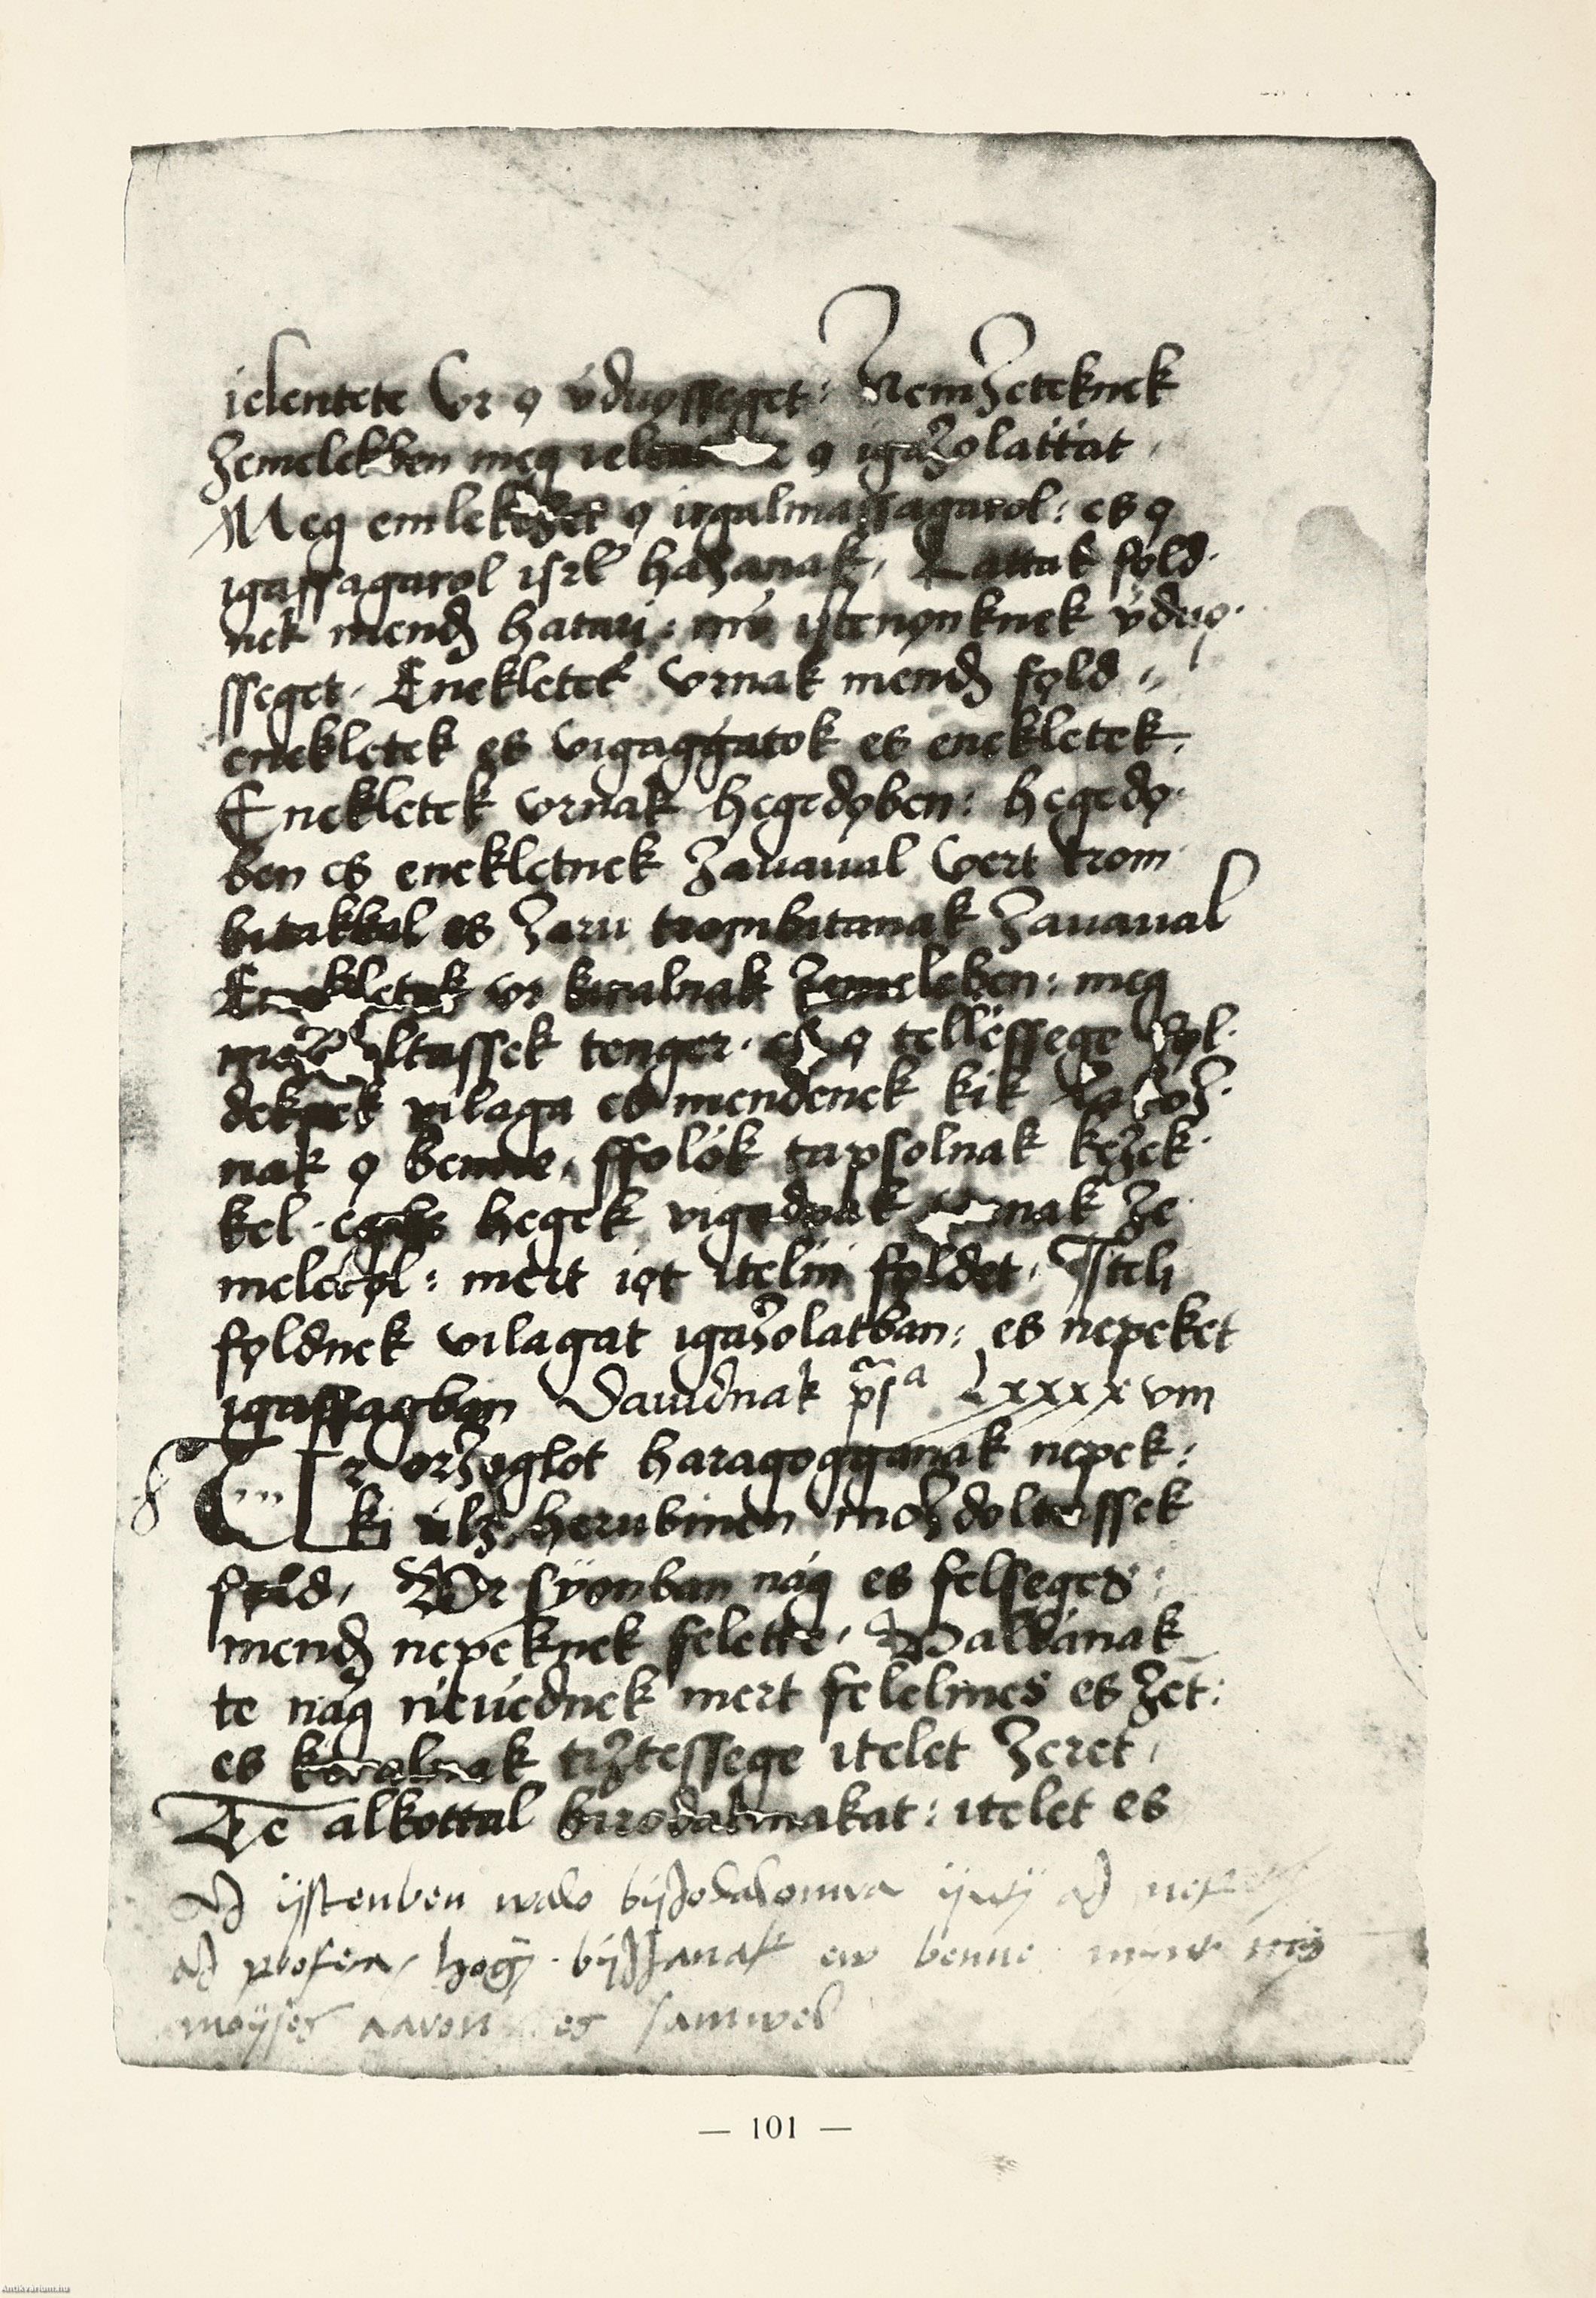 ielentete Vr ọ v́duọsseget: Nemʒeteknek
ʒemelekben meg ielen ọ igaʒolattat
Meg emlekeʒet ọ irgalmassagarol: es ọ
igassagarol isrl haʒanak, Lattak fọld
nek menđ hatari: mú istenọnknek v́duọ
sseget. Enekletek vrnak menđ fọld
enekletek es vigaggatok es enekletek,
Enekletek vrnak hegedọben: hegedọ
ben es enekletnek ʒauaual vert trom
bitakkal es ʒaru trombitanak ʒauaual
Enekletek vr kiralnak ʒemeleben: meg
tassek tenger. es ọ tellessege fọl
deknek vilaga es mendenek kik lakoʒ
nak ọ benne, ffolók tapsolnak keʒek
kel. hegek vigadnak vrnak ʒe
melecọl: mert iọt itelni fọldet, Iteli
fọldnek vilagat igaʒolatban: es nepeket
igassagban Dauidnak p̃sa Lxxxxviii
Vr orʒaglot haragogganak nepek:
ki úlʒ herubinen moʒdoltassek
fọld, Vr syonban nag es felseges:
menđ nepeknek felette, Vallanak
te nag neuednek mert felelmes es ʒet:
es kiralnak tiʒtessege itelet ʒeret,
Te alkottal birodalmakat: itelet es
Aʒ ÿstenben walo bÿʒodalomra ÿnty aʒ
aʒ profeta, hogÿ bÿʒʒanak ew benne mint
moÿses aaron es samwel
— 101 —
antikvarium.hu